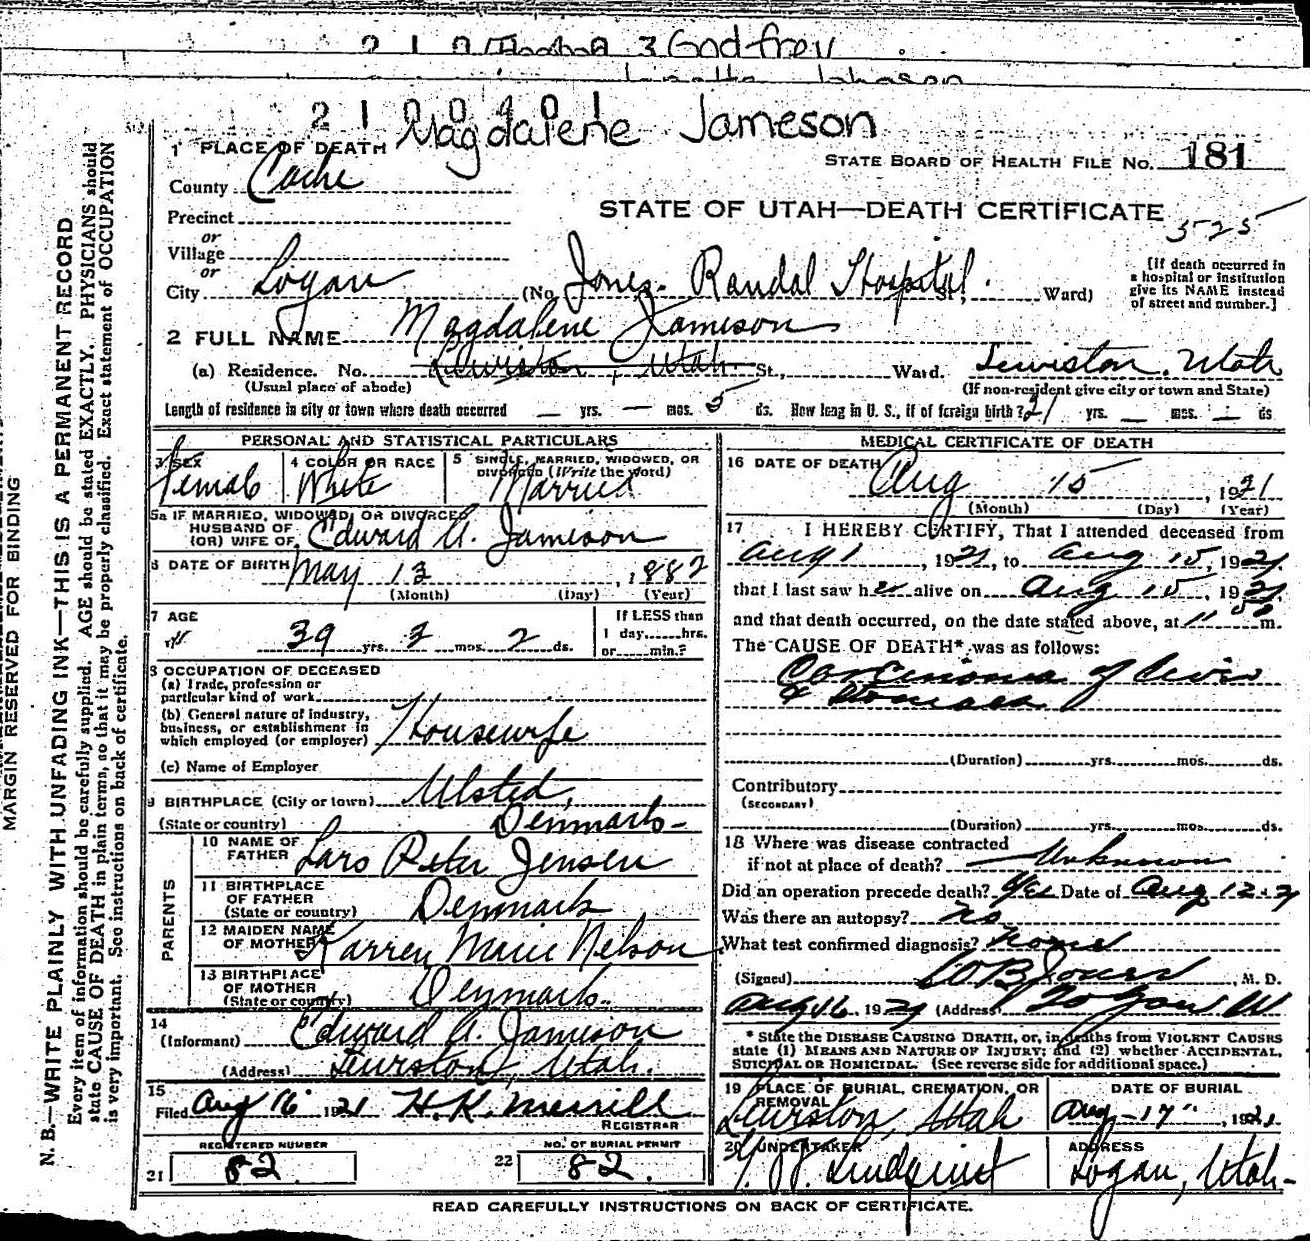 3 Godfrey
Johnson
2 1 0 0 4 0 1
Magdalene Jameson
1 PLACE OF DEATH
STATE BOARD OF HEALTH FILE NO. 181
County Cache
STATE OF UTAH—DEATH CERTIFICATE
525
Precinct
or
Village
or
City Logan (No. Jones. Randal Hospital St., Ward)
[If death occurred in
a hospital or institution
give its NAME instead
of street and number.]
2 FULL NAME Magdalene Jameson
(a) Residence. No. Lewiston, Utah. St., Ward. Lewiston, Utah
(Usual place of abode) (If non-resident give city or town and State)
Length of residence in city or town where death occurred — yrs. — mos. 5 ds. How long in U. S., if of foreign birth? 21 yrs. — mos. — ds
PERSONAL AND STATISTICAL PARTICULARS
3 SEX
Female
4 COLOR OR RACE
White
5 SINGLE, MARRIED, WIDOWED, OR
DIVORCED (Write the word)
Married
5a IF MARRIED, WIDOWED, OR DIVORCED
HUSBAND OF
(OR) WIFE OF Edward A. Jameson
6 DATE OF BIRTH May 13, 1882
(Month) (Day) (Year)
7 AGE
39 yrs. 3 mos. 2 ds.
If LESS than
1 day......hrs.
or......min.?
8 OCCUPATION OF DECEASED
(a) Trade, profession or
particular kind of work
(b) General nature of industry,
business, or establishment in
which employed (or employer) Housewife
(c) Name of Employer
9 BIRTHPLACE (City or town) Ulsted,
(State or country) Denmark-
PARENTS
10 NAME OF
FATHER Lars Peter Jensen
11 BIRTHPLACE
OF FATHER
(State or country) Denmark
12 MAIDEN NAME
OF MOTHER Karren Marie Nelson
13 BIRTHPLACE
OF MOTHER
(State or country) Denmark.
14
(Informant) Edward A. Jameson
(Address) Lewiston, Utah.
15
Filed Aug 16 1921 H. K. Merrill
REGISTRAR
REGISTERED NUMBER
21 82
NO. OF BURIAL PERMIT
22 82.
MEDICAL CERTIFICATE OF DEATH
16 DATE OF DEATH Aug 15, 1921
(Month) (Day) (Year)
17 I HEREBY CERTIFY, That I attended deceased from
Aug 1, 1921, to Aug 15, 1921,
that I last saw her alive on Aug 15, 1921,
and that death occurred, on the date stated above, at 11 50 m.
The CAUSE OF DEATH* was as follows:
Carcinoma of liver
& Stomach
(Duration) yrs. mos. ds.
Contributory
(SECONDARY)
(Duration) yrs. mos. ds.
18 Where was disease contracted
if not at place of death? Unknown
Did an operation precede death? Yes Date of Aug 12-21
Was there an autopsy? No
What test confirmed diagnosis? None
(Signed) W B Jones, M. D.
Aug 16 1921 (Address) Logan U
* State the DISEASE CAUSING DEATH, or, in deaths from VIOLENT CAUSES
state (1) MEANS AND NATURE OF INJURY; and (2) whether ACCIDENTAL,
SUICIDAL OR HOMICIDAL. (See reverse side for additional space.)
19 PLACE OF BURIAL, CREMATION, OR
REMOVAL
Lewiston, Utah
DATE OF BURIAL
Aug-17", 1921
20 UNDERTAKER
Lindquist
ADDRESS
Logan, Utah-
READ CAREFULLY INSTRUCTIONS ON BACK OF CERTIFICATE.
MARGIN RESERVED FOR BINDING
N. B.—WRITE PLAINLY WITH UNFADING INK—THIS IS A PERMANENT RECORD
Every item of information should be carefully supplied. AGE should be stated EXACTLY. PHYSICIANS should
state CAUSE OF DEATH in plain terms, so that it may be properly classified. Exact statement of OCCUPATION
is very important. See instructions on back of certificate.